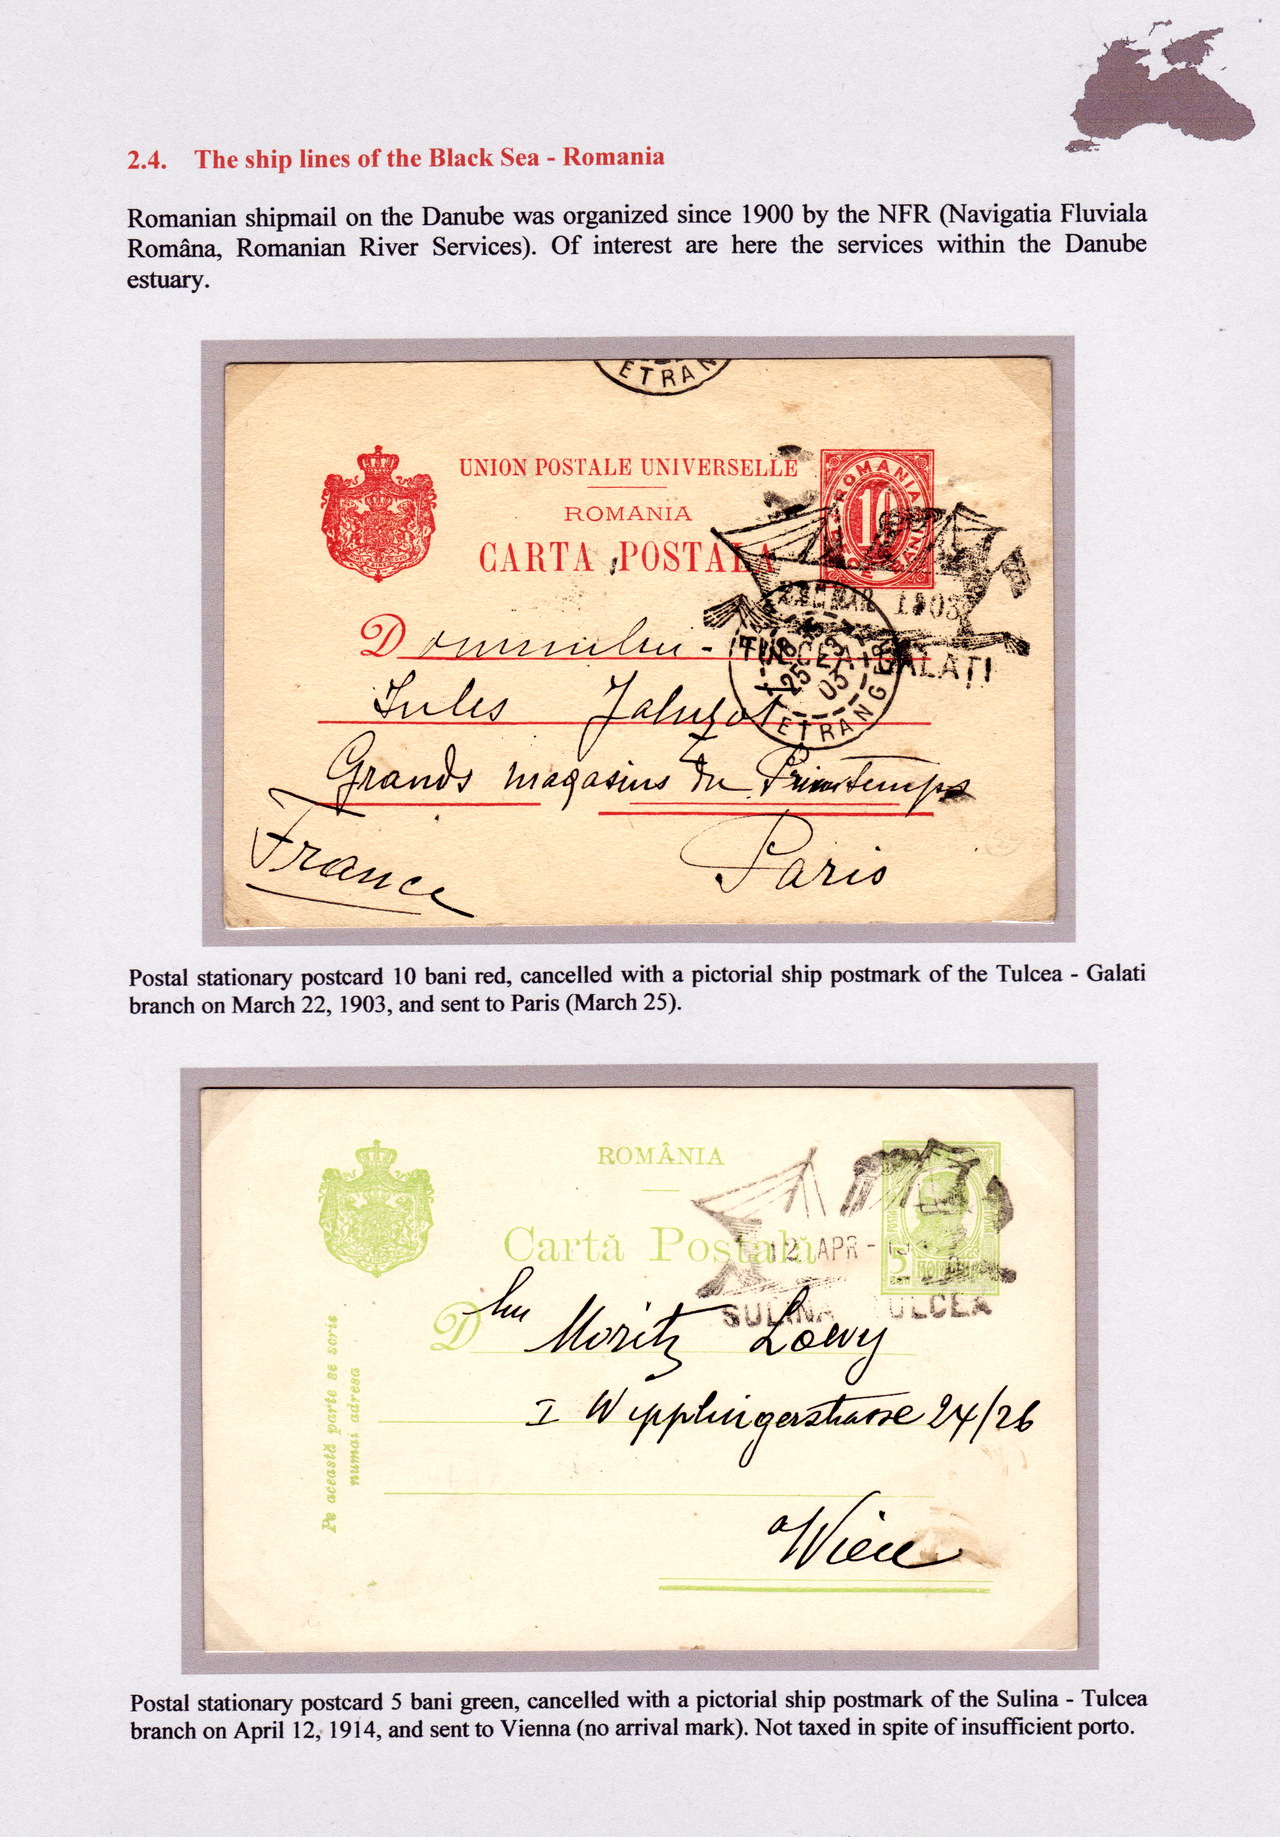 2.4. The ship lines of the Black Sea - Romania
Romanian shipmail on the Danube was organized since 1900 by the NFR (Navigatia Fluviala
Româna, Romanian River Services). Of interest are here the services within the Danube
estuary.
ETRAN
UNION POSTALE UNIVERSELLE
ROMANIA
CARTA POSTALA
ROMANIA
10
BANI
MAR 1903
TULCEA - GALAȚI
25 3
03
ETRANGER
D
Jules Jaluzot
Grands magasins du Printemps
Paris
France
Postal stationary postcard 10 bani red, cancelled with a pictorial ship postmark of the Tulcea - Galati
branch on March 22, 1903, and sent to Paris (March 25).
ROMÂNIA
Cartă Poștală
POSTA
5
BANI
12 APR -
SULINA TULCEA
D
Moritz Loewy
I Wipplingerstrasse 24/26
Wien
Pe această parte se scrie
numai adresa
Postal stationary postcard 5 bani green, cancelled with a pictorial ship postmark of the Sulina - Tulcea
branch on April 12, 1914, and sent to Vienna (no arrival mark). Not taxed in spite of insufficient porto.